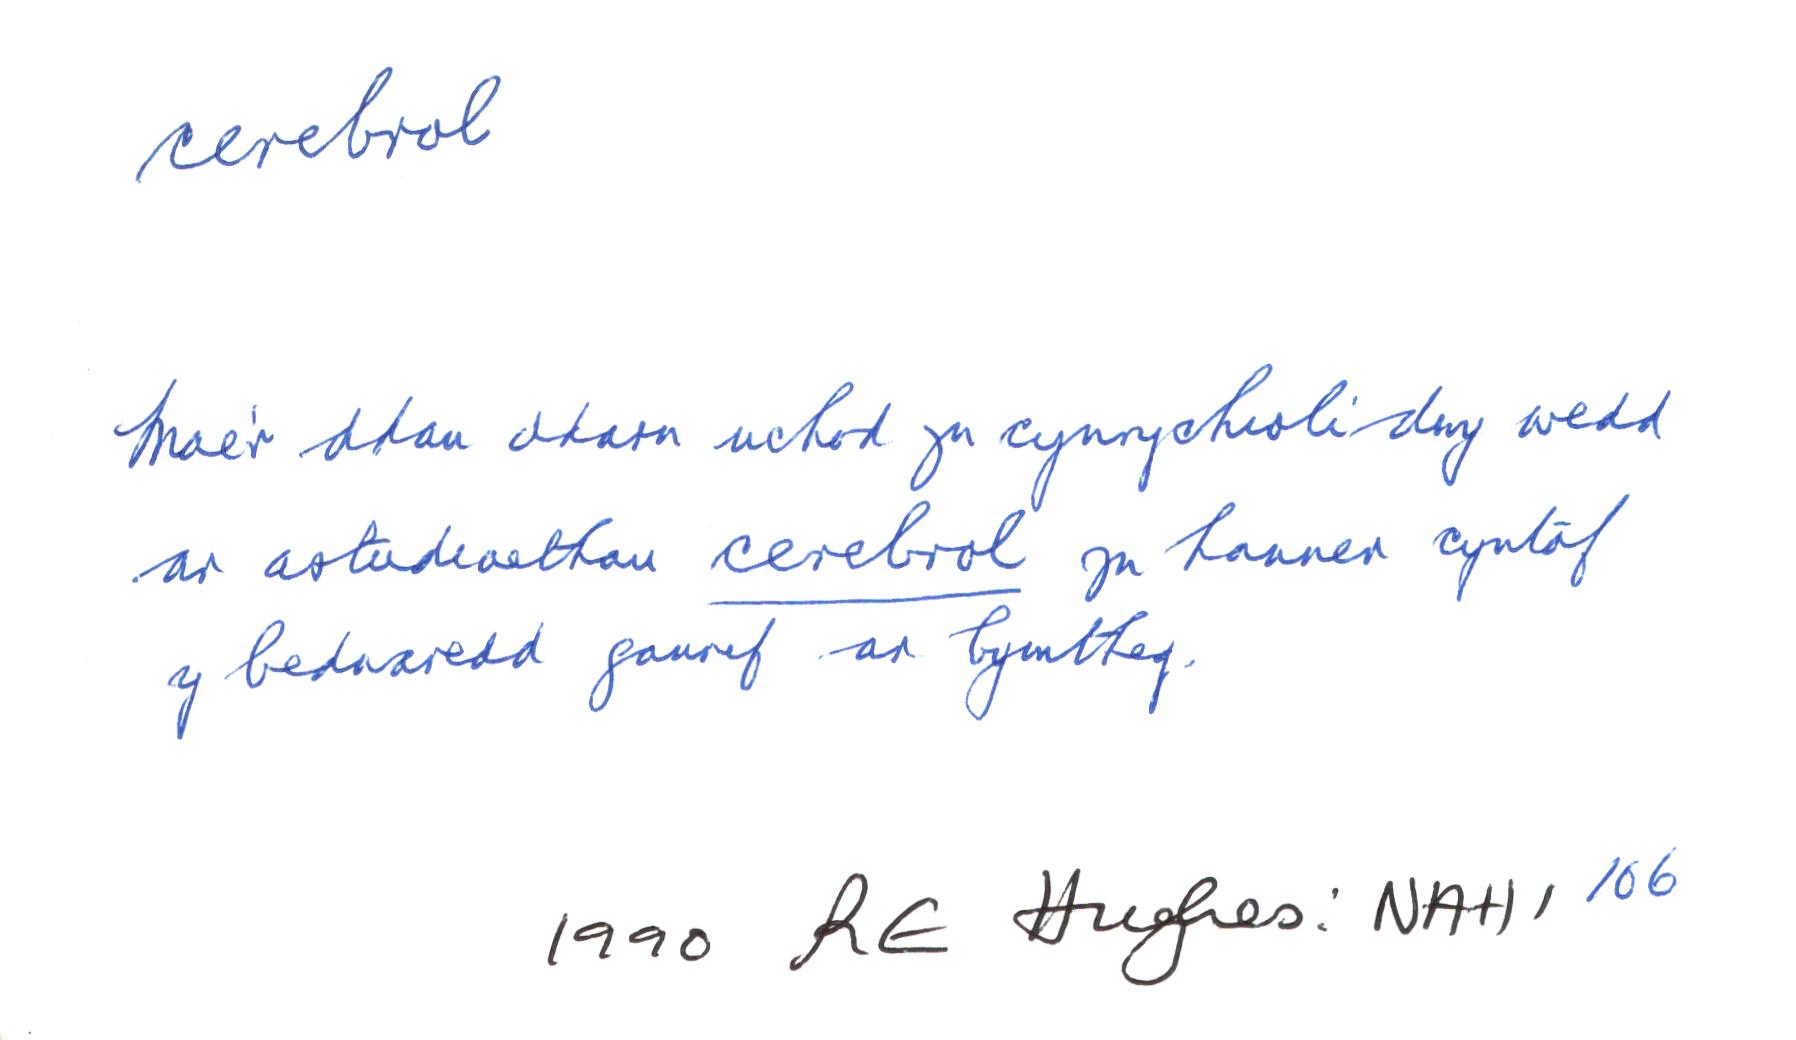 cerebrol
Mae'r ddau ddarn uchod yn cynrychioli dwy wedd
ar astudiaethau cerebrol yn hanner cyntaf
y bedwaredd ganrif ar bymtheg.
1990 RE Hughes: NAH, 106